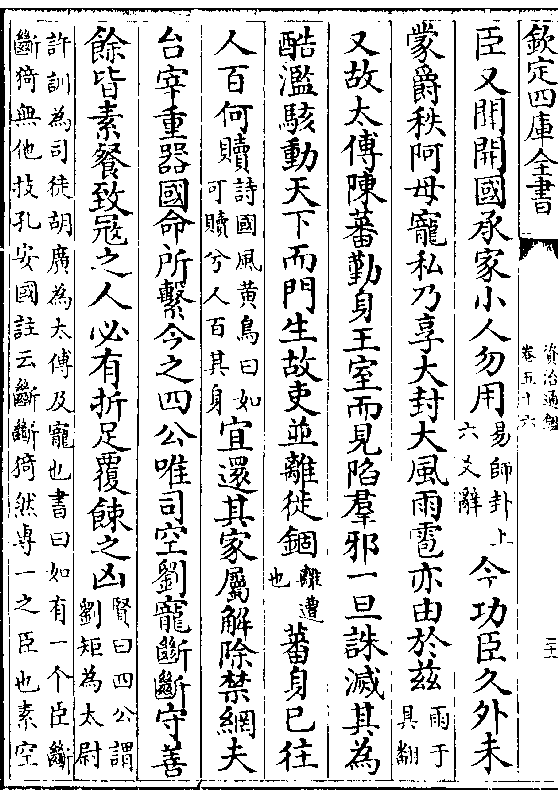 欽定四庫全書
資治通鑑
卷五十六
臣又聞開國承家小人勿用易師卦上六爻辭今功臣久外未
蒙爵秩阿母寵私乃享大封大風雨雹亦由於茲雨于具翻
又故太傅陳蕃勤身王室而見陷羣邪一旦誅滅其為
酷濫駭動天下而門生故吏並離徙錮離遭也蕃身已往
人百何贖詩國風黄鳥曰如可贖兮人百其身宜還其家屬解除禁網夫
台宰重器國命所繫今之四公唯司空劉寵斷斷守善
餘皆素餐致冦之人必有折足覆餗之凶賢曰四公謂劉矩為太尉
許訓為司徒胡廣為太傅及寵也書曰如有一个臣斷
斷猗無他技孔安國註云斷斷猗然専一之臣也素空